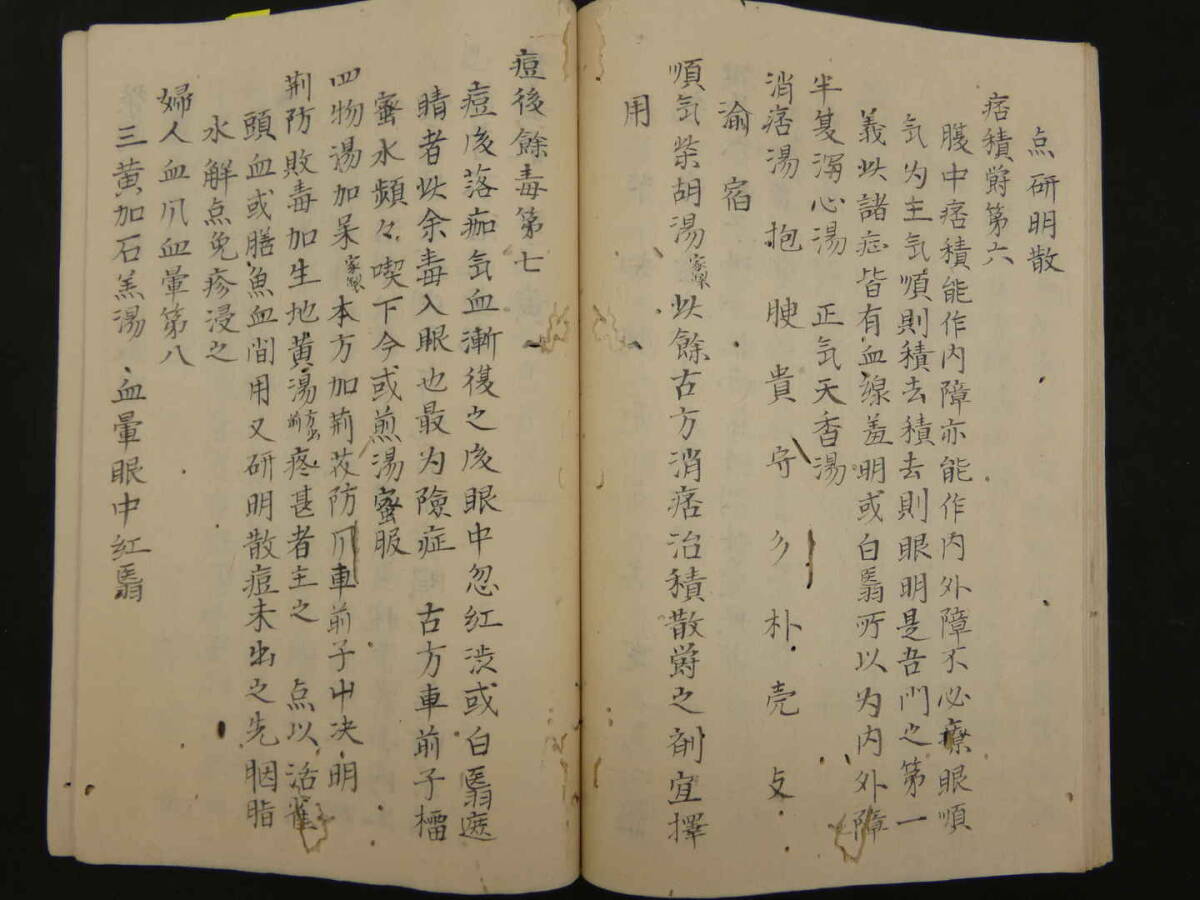 点研明散
痞積欝第六
腹中痞積能作内障亦能作内外障不必療眼順
気为主気順則積去積去則眼明是吾門之第一
義此諸症皆有血線羞明或白翳所以为内外障
半夏瀉心湯 正気天香湯
消痞湯 抱 腴 貴 守 朴 壳
渝 宿
順気柴胡湯 此餘古方消痞治積散欝之剤宜擇
用
痘後餘毒第七
痘後落痂気血漸復之後眼中忽红渋或白翳遮
睛者此余毒入眼也最为險症 古方車前子擂
蜜水頻々喫下今或煎湯蜜服
四物湯加呆 本方加荊芥防风車前子中决明
荊防敗毒加生地黄湯 疼甚者主之 点以活雀
頭血或膳魚血間用又研明散痘未出之先胭脂
水解点免疹浸之
婦人血风血暈第八
三黄加石羔湯 血暈眼中红翳